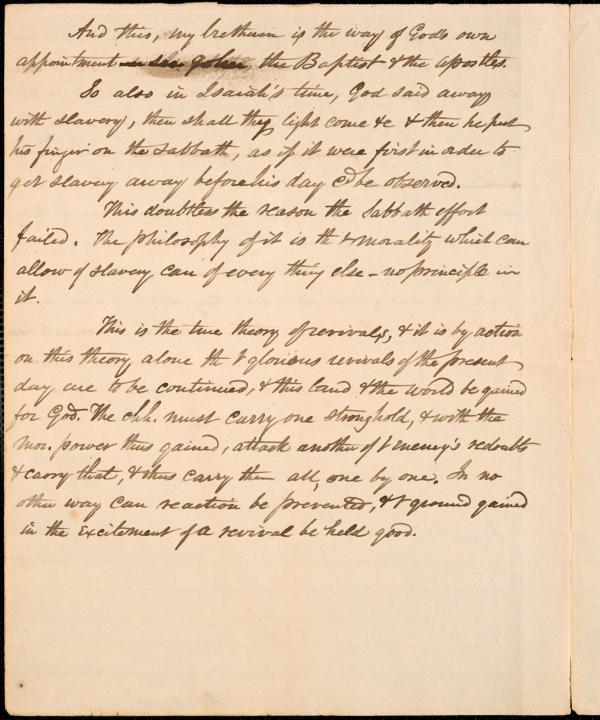 And this, my brethren is the way of God's own
appointment in see John, the Baptist & the apostles.
So also in Isaiah's time, God said away
with slavery, then shall thy light come &c & then he put
his finger on the Sabbath, as if it were first in order to
get slavery away before his day cd be observed.
This doubtless the reason the Sabbath effort
failed. The philosophy of it is th t morality which can
allow of slavery can of every thing else – no principle in
it.
This is the true theory of revivals, & it is by action
on this theory, alone th t glorious revivals of the present
day are to be continued, & this land & the world be gained
for God. The chh. must carry one stronghold, & with the
mor. power thus gained, attack another of t Enemy's redoubts
& carry that, & thus carry them all, one by one. In no
other way can reaction be prevented, & t ground gained
in the excitement of a revival be held good.